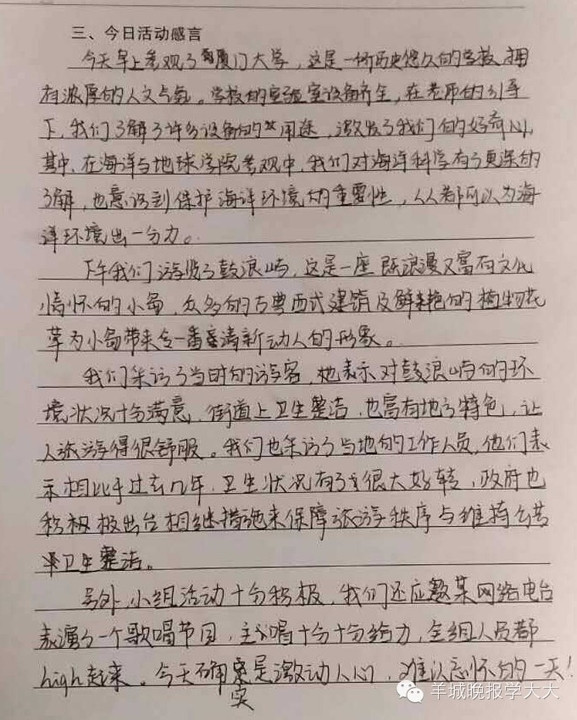 三、今日活动感言
今天早上参观了厦门大学，这是一所历史悠久的学校，拥
有浓厚的人文气息。学校的实验室设备齐全，在老师的引导
下，我们了解了许多设备的用途，激发了我们的好奇心。
其中，在海洋与地球学院参观中，我们对海洋科学有了更深的
了解，也意识到保护海洋环境的重要性，人人都可以为海
洋环境出一分力。
下午我们游览了鼓浪屿，这是一座既浪漫又富有文化
情怀的小岛，众多的古典西式建筑及鲜艳的植物花
草为小岛带来一番清新动人的形象。
我们采访了当时的游客，她表示对鼓浪屿的环
境状况十分满意，街道上卫生整洁，也富有地方特色，让
人旅游得很舒服。我们也采访了当地的工作人员，他们表
示相比于过去几年，卫生状况有了很大好转，政府也
积极出台相继措施来保障旅游秩序与维持公共
卫生整洁。
另外，小组活动十分积极，我们还应邀某网络电台
表演了一个歌唱节目，主唱十分十分给力，全组人员都
high起来。今天确实是激动人心，难以忘怀的一天！
羊城晚报学大大